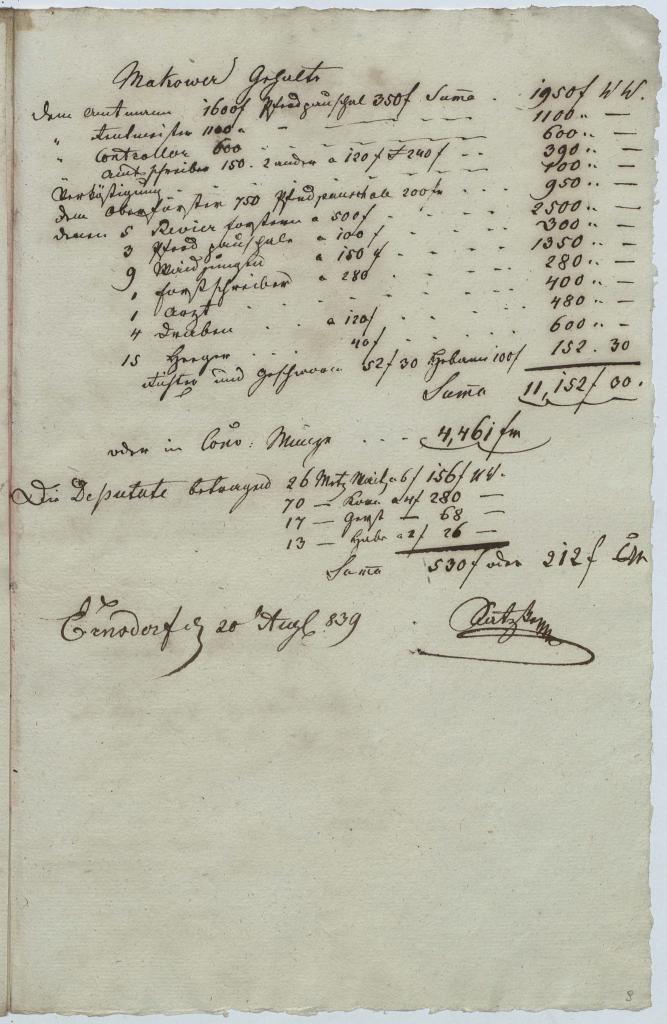 Makower Gehalte
dem Amtmann 1600f Pferdpauschal 350f Suma . 1950f W W.
" Rentmeister 1100 " - 1100 .. —
" Controllor 600 - 600 .. —
" Amtschreiber 150. 2 ander a 120f 240f - 390 .. —
Verköstigung - 700 .. —
dem Oberförster 750 Pferdpauschale 200f - 950 .. —
denen 5 Revier forstern a 500f - 2500 .. —
3 Pferd pauschale a 100f - 300 .. —
9 Waidjungen a 150f - 1350 .. —
1 forstschreiber a 280 - 280 .. —
1 Arzt - 400 .. —
4 Draben a 120f - 480 .. —
15 Heeger 40f - 600 .. —
und geschworn 52f 30 Hebamm 100f 152 . 30
Suma 11,152f 30.
oder in Conv: Münze - - - 4,461 fm
Die Deputate betragend 26 Metz Waitz a 6f 156f W.
70 — Korn a 4f 280 —
17 — Gerst — 68 —
13 — Habr a 2f 26 —
Suma 530f oder 212f CM
Ernsdorf d 20 Augt 839